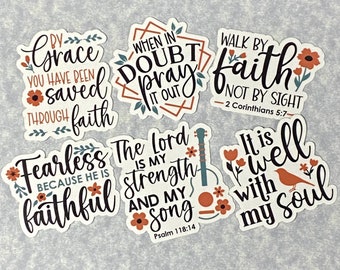 BY
Grace
YOU HAVE BEEN
saved
THROUGH faith
WHEN IN
DOUBT
pray
IT OUT
WALK BY
faith
NOT BY SIGHT
2 Corinthians 5:7
Fearless
BECAUSE HE IS
faithful
The Lord
IS MY
strength
AND MY
song
Psalm 118:14
It is
well
with
my soul